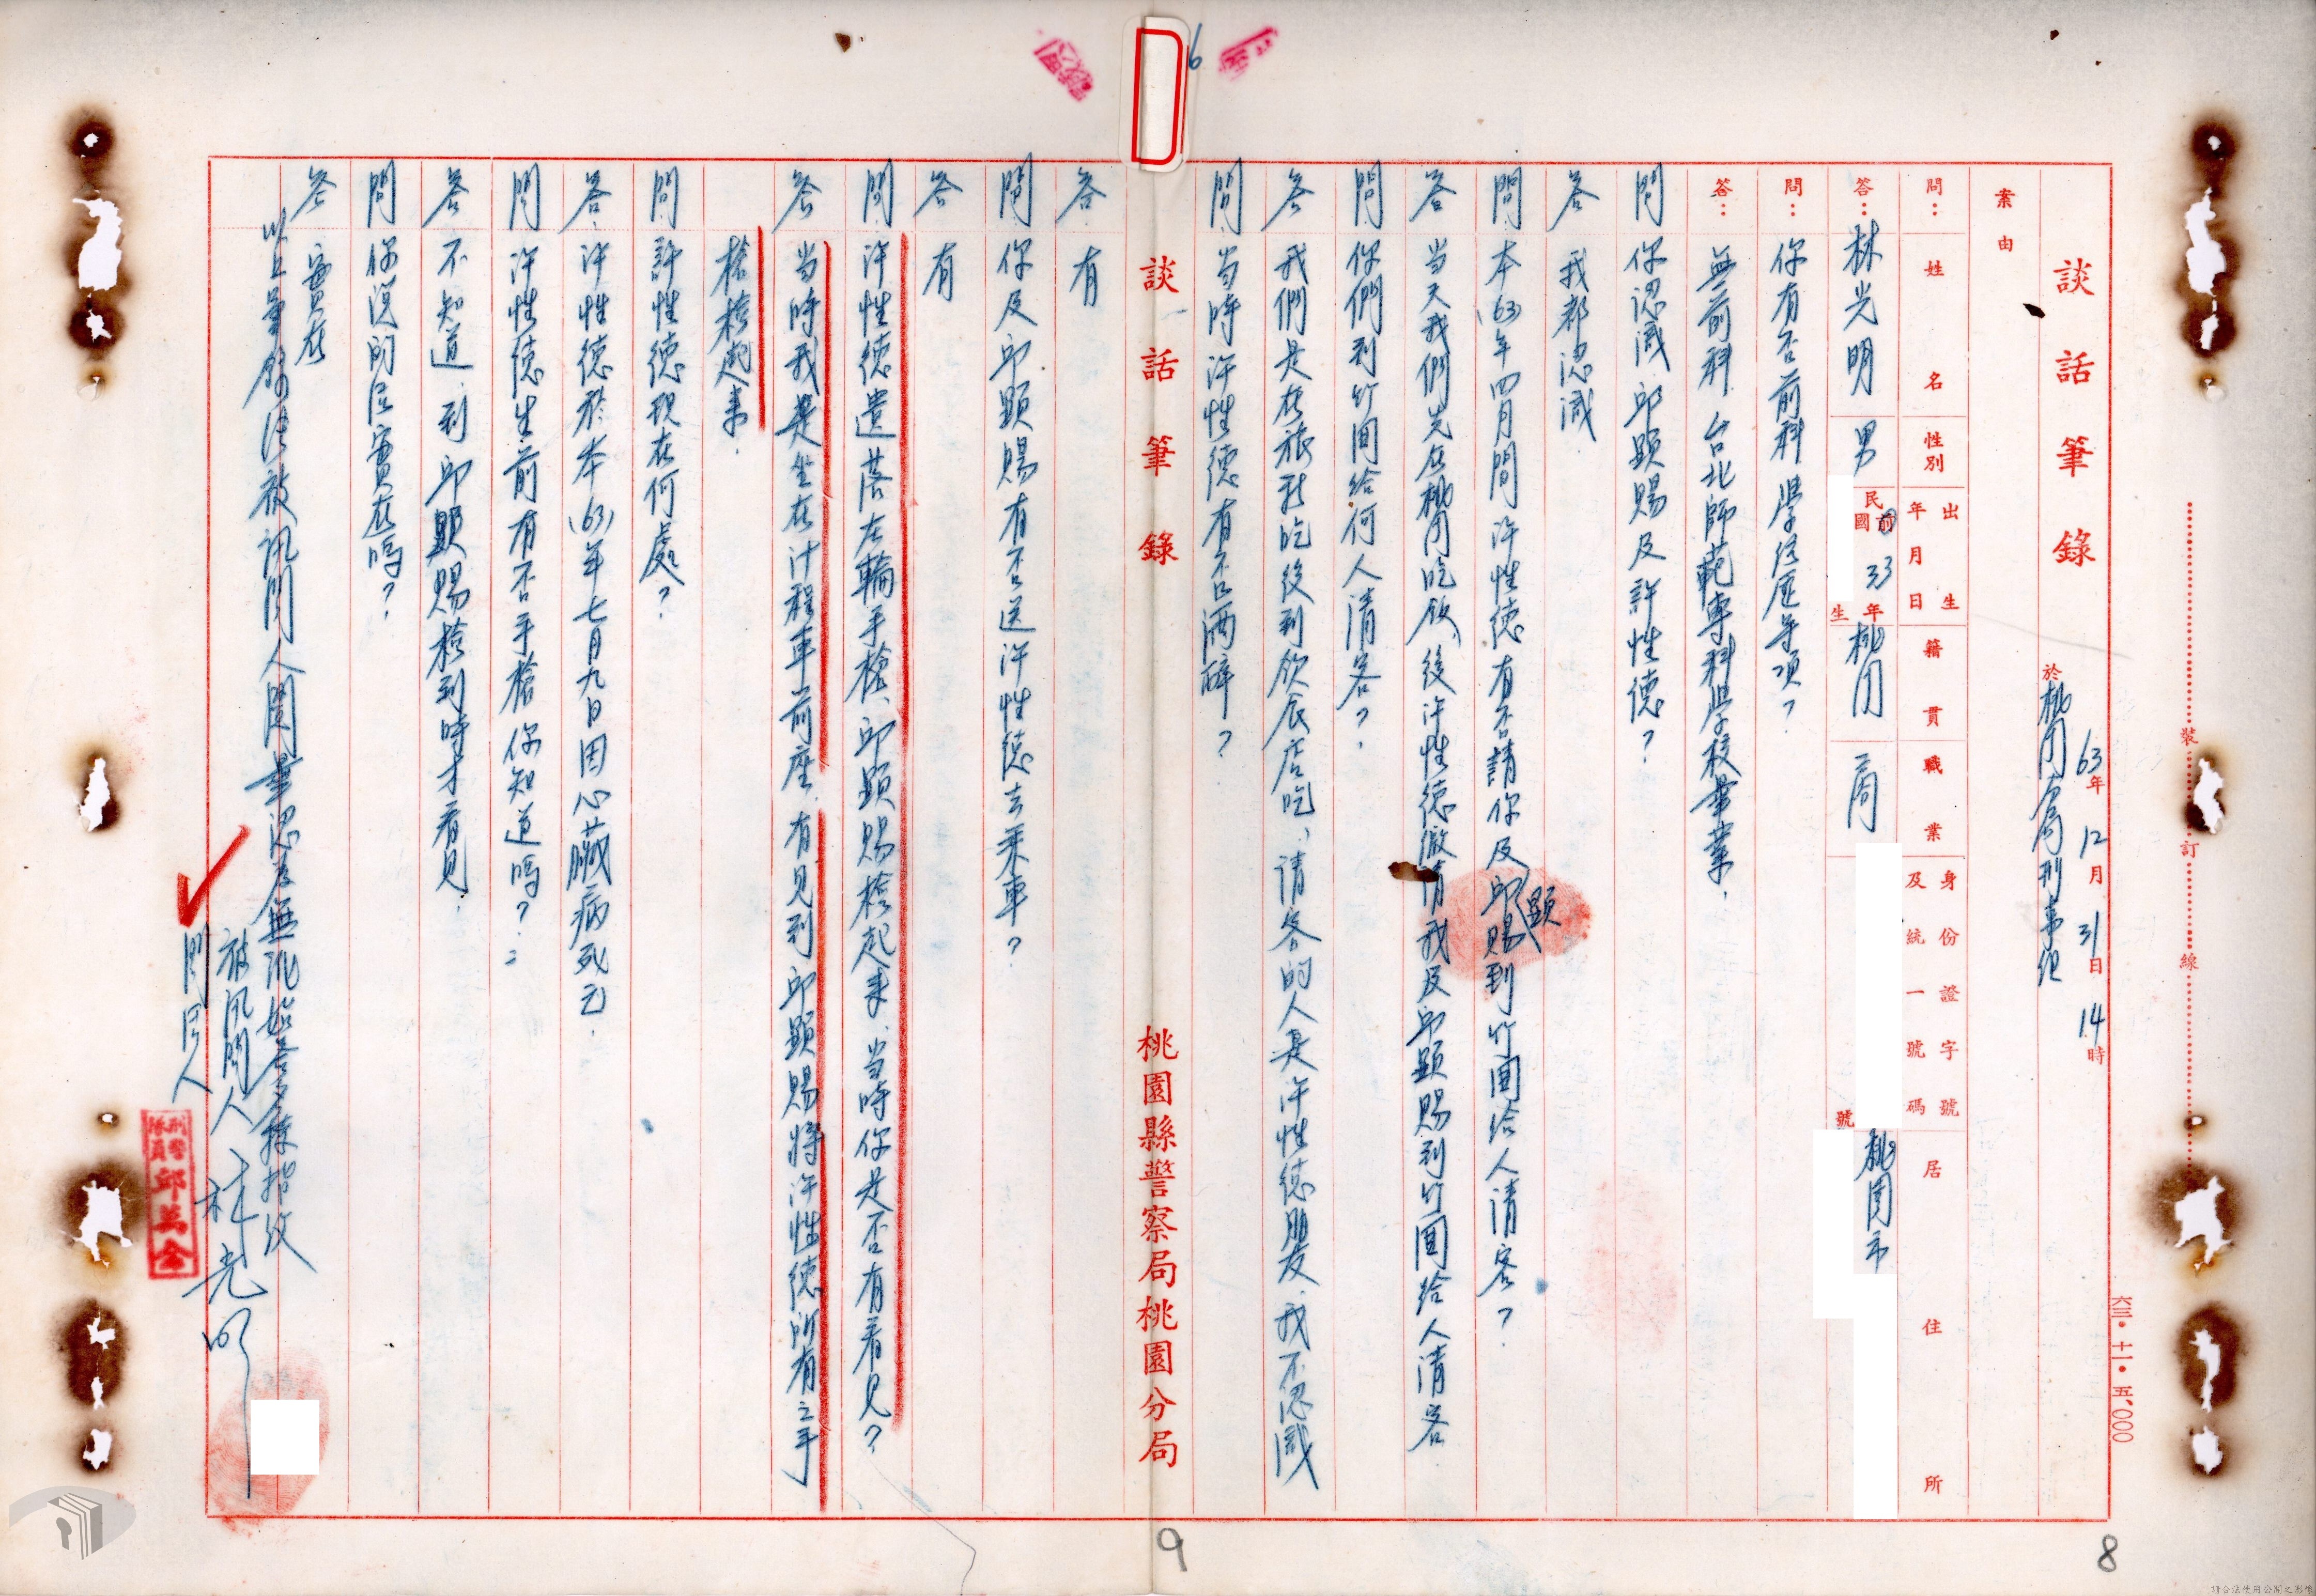 談話筆錄
63年12月31日14時
於桃園分局刑事組
案由
問：姓名 性別 出生年月日 籍貫 職業 身份證字號及統一號碼 居住所
答：林光明 男 民前國33年生 桃園 商 號 桃園市
問：你有否前科學經歷等項？
答：無前科，台北師範專科學校畢業，
問 你認識邱顯賜及許性德？
答 我都認識
問 本(63)年四月間許性德有否請你及邱顯賜到竹圍給人請客？
答 当天我們先在桃園吃飯，後許性德邀請我及邱顯賜到竹圍給人請客
問 你們到竹圍給何人請客？
答 我們是在旅社吃後到飲食店吃，请客的人是许性德朋友，我不認識
問 当時許性德有否酒醉？
談話筆錄 桃園縣警察局桃園分局
答 有
問 你及邱顯賜有否送許性德去乘車？
答 有
問 許性德遺落左輪手槍，邱顯賜撿起來，当時你是否有看見？
答 当時我是坐在計程車前座，有見到邱顯賜將許性德所有之手
槍撿起來，
問 許性德現在何處？
答 許性德於本(63)年七月九日因心臟病死亡，
問 許性德生前有否手槍你知道嗎？
答 不知道，到邱顯賜撿到時才看見，
問 你說的是實在嗎？
答 實在
以上筆錄經被訊問人閱畢認為無訛始簽名捺指紋
被訊問人 林光明
問訊人
刑警隊員 邱萬金
裝訂線
六三・十一・五、000
6
9
8
請合法使用公開之影像